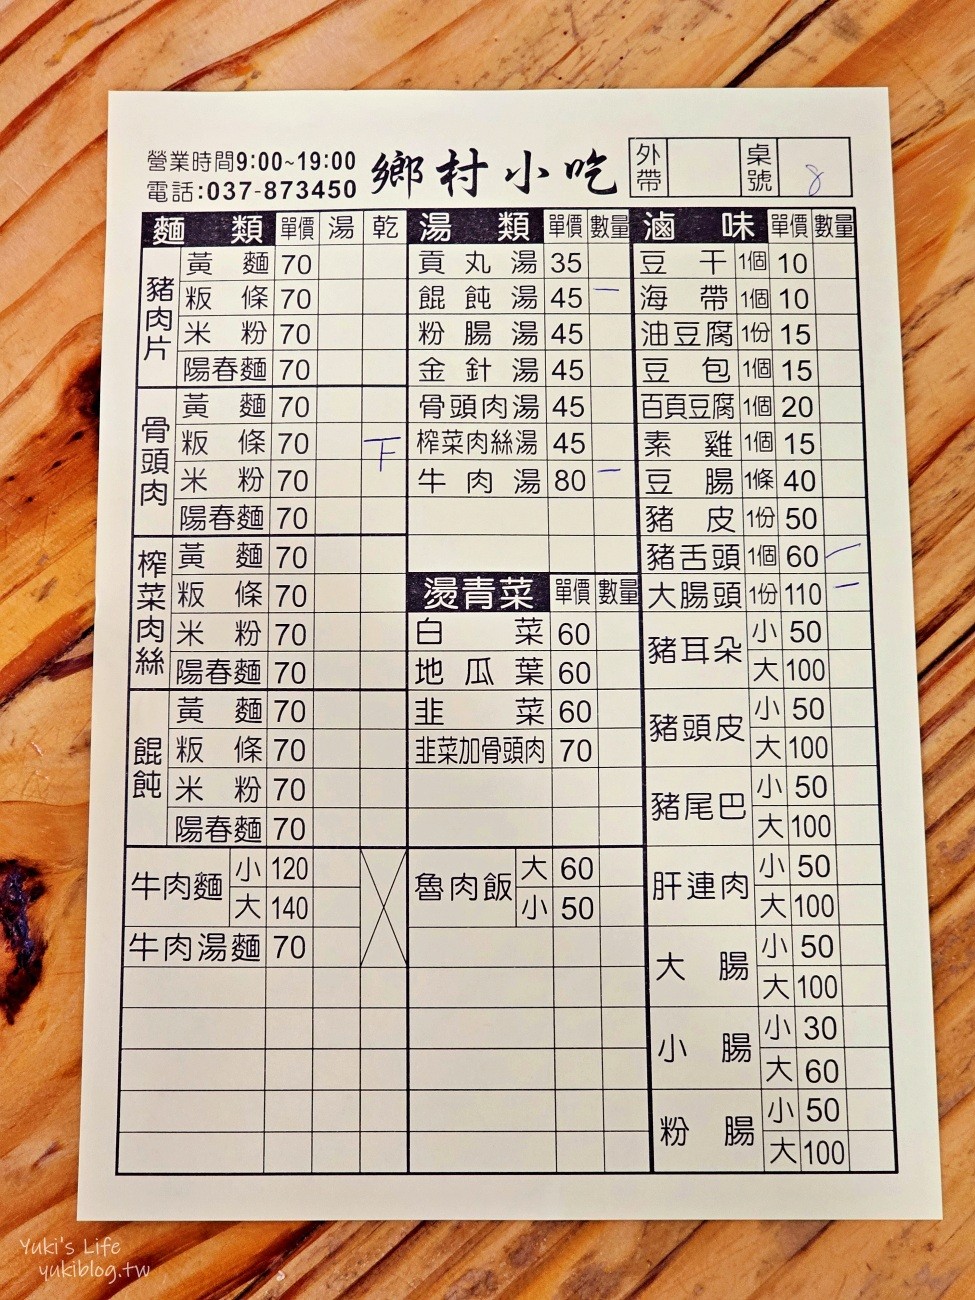 營業時間9:00~19:00
電話:037-873450
鄉村小吃
外帶
桌號 8
麵類 單價 湯 乾
豬肉片
黃麵 70
粄條 70
米粉 70
陽春麵 70
骨頭肉
黃麵 70
粄條 70
米粉 70
陽春麵 70
榨菜肉絲
黃麵 70
粄條 70
米粉 70
陽春麵 70
餛飩
黃麵 70
粄條 70
米粉 70
陽春麵 70
牛肉麵 小 120
大 140
牛肉湯麵 70
湯類 單價 數量
貢丸湯 35
餛飩湯 45 一
粉腸湯 45
金針湯 45
骨頭肉湯 45
榨菜肉絲湯 45
牛肉湯 80 一
燙青菜 單價 數量
白菜 60
地瓜葉 60
韭菜 60
韭菜加骨頭肉 70
魯肉飯 大 60
小 50
滷味 單價 數量
豆干 1個 10
海帶 1個 10
油豆腐 1份 15
豆包 1個 15
百頁豆腐 1個 20
素雞 1個 15
豆腸 1條 40
豬皮 1份 50
豬舌頭 1個 60 一
大腸頭 1份 110 一
豬耳朵 小 50
大 100
豬頭皮 小 50
大 100
豬尾巴 小 50
大 100
肝連肉 小 50
大 100
大腸 小 50
大 100
小腸 小 30
大 60
粉腸 小 50
大 100
Yuki's Life
yukiblog.tw